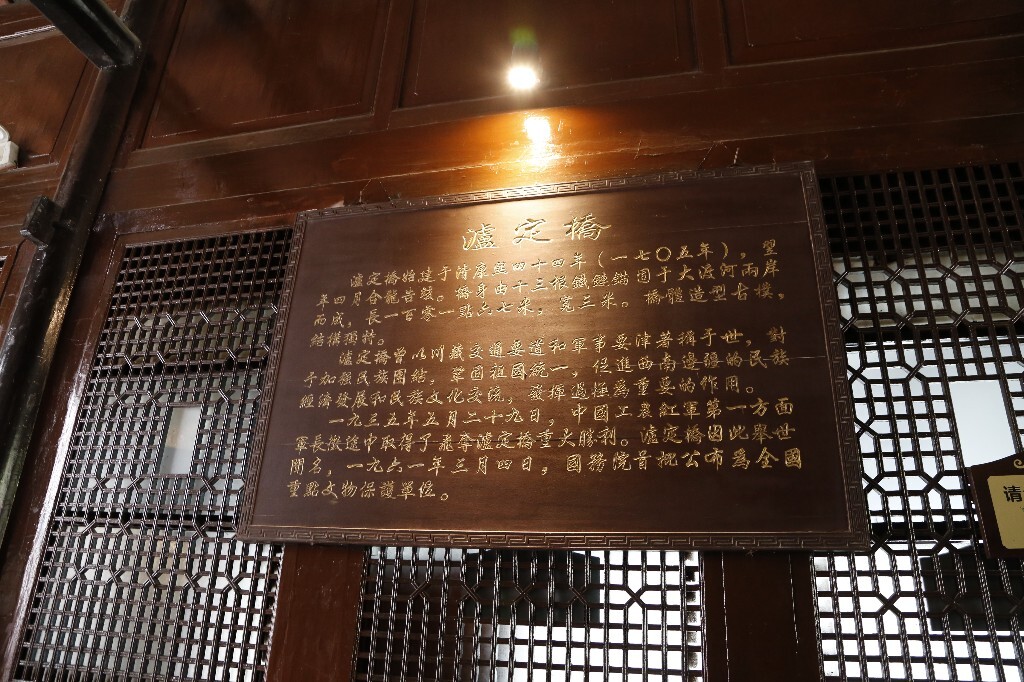 瀘定橋
瀘定橋始建于清康熙四十四年（一七〇五年），翌
年四月合龍告竣。橋身由十三根鐵鏈錨固于大渡河兩岸
而成，長一百零一點六七米，寬三米。橋體造型古樸，
結構獨特。
瀘定橋曾以川藏交通要道和軍事要津著稱于世，對
于加強民族團結，鞏固祖國統一，促進西南邊疆的民族
經濟發展和民族文化交流，發揮過極為重要的作用。
一九三五年五月二十九日，中國工農紅軍第一方面
軍長徵途中取得了飛奪瀘定橋重大勝利。瀘定橋因此舉世
聞名，一九六一年三月四日，國務院首批公布為全國
重點文物保護單位。
请